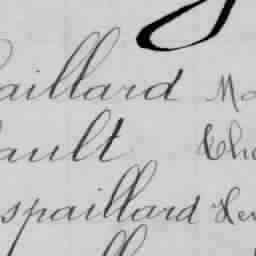 aillard Ma
ault Cha
spaillard